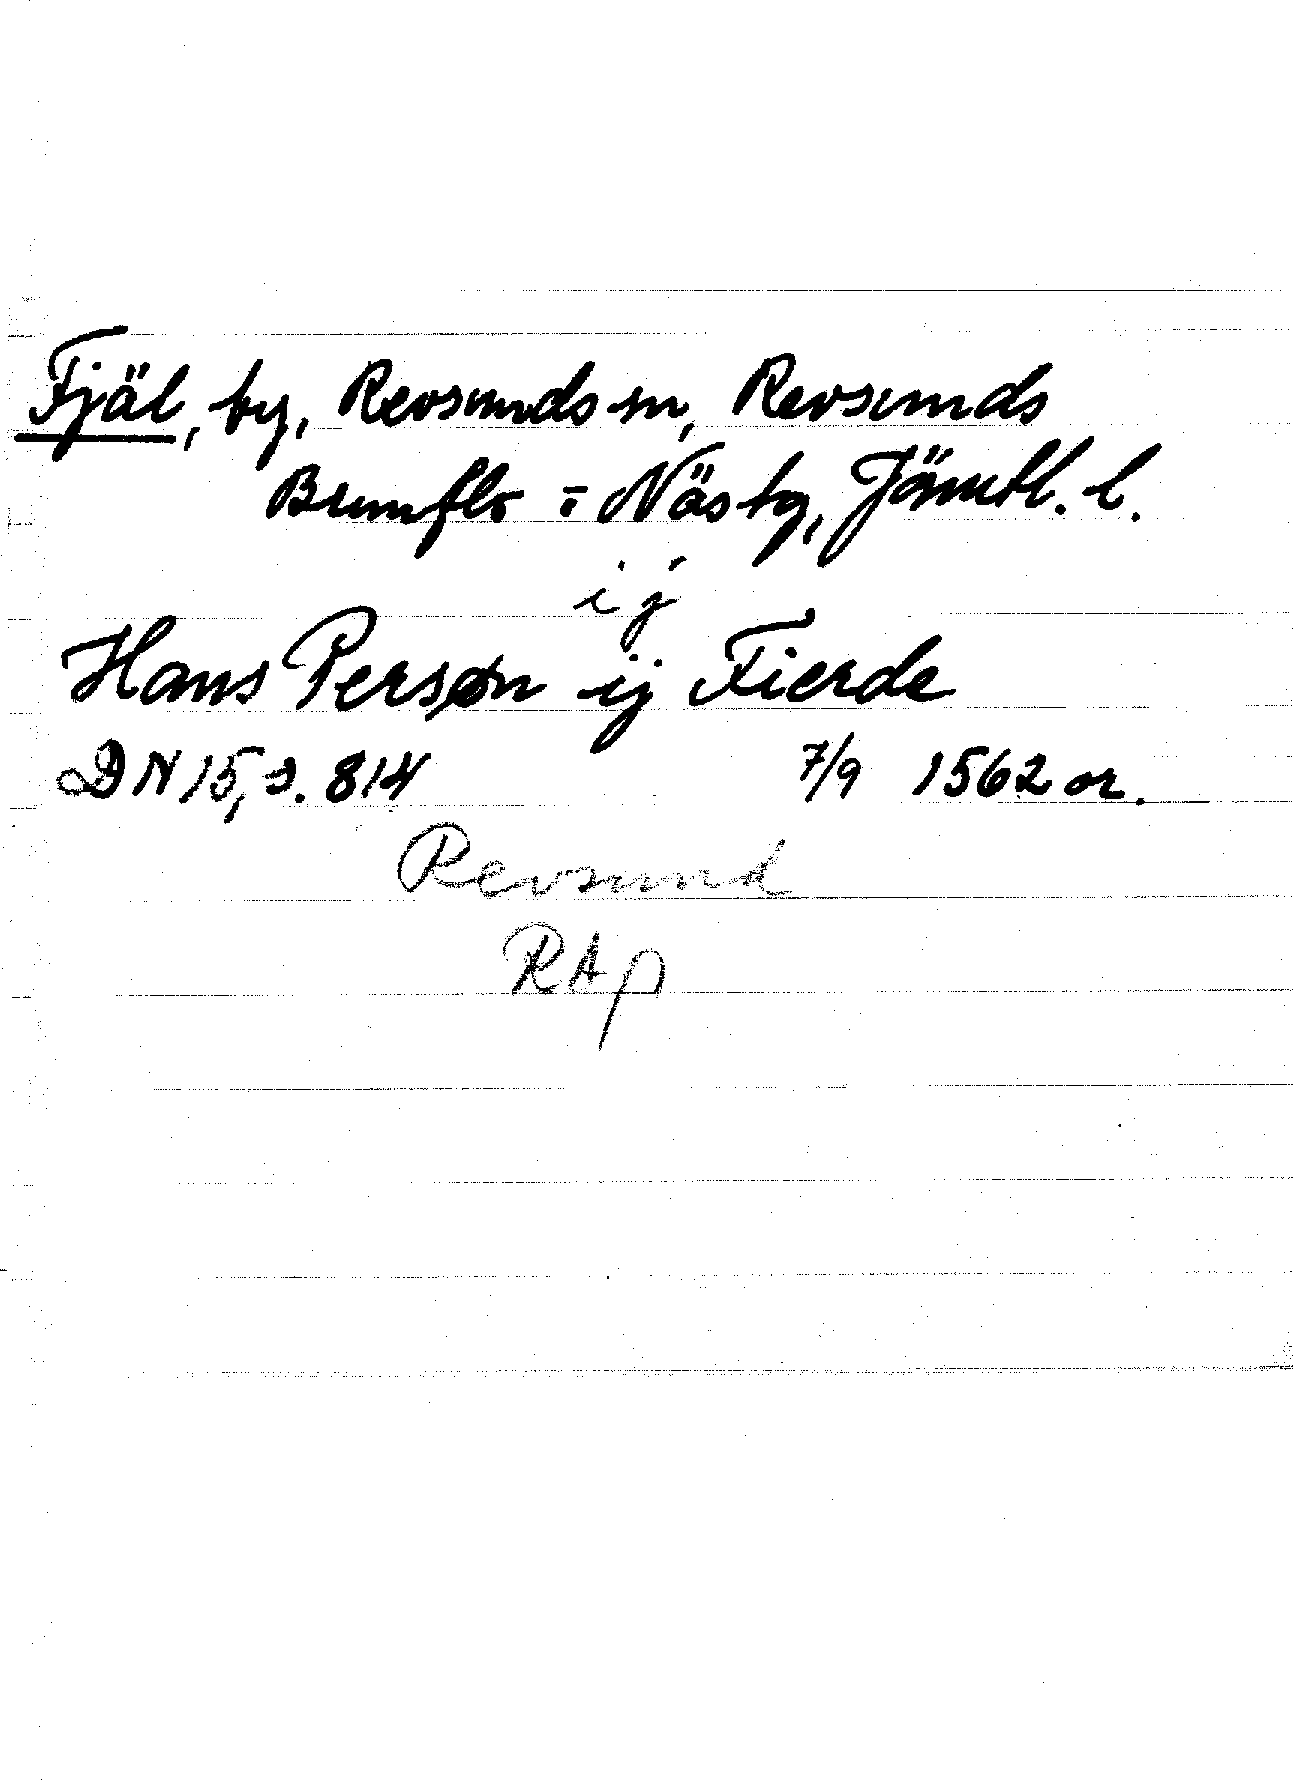 Fjäl, by, Revsunds sn, Revsunds
Brunflo = Näs tg, Jämtl. l.
i j
Hans Persøn ij Fierde
DN 15, s. 814 7/9 1562 or.
Revsund
RAp